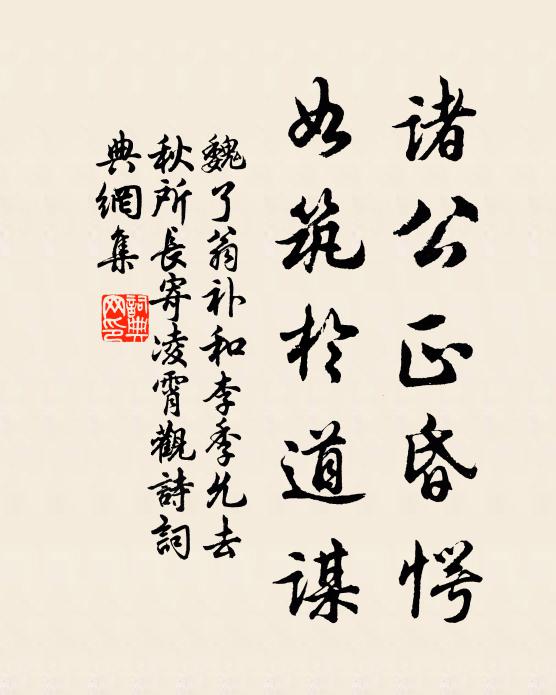 诸公正昏愕
如筑於道谋
魏了翁补和李季允去
秋所长寄凌霄观诗词
典网集
詞典網印